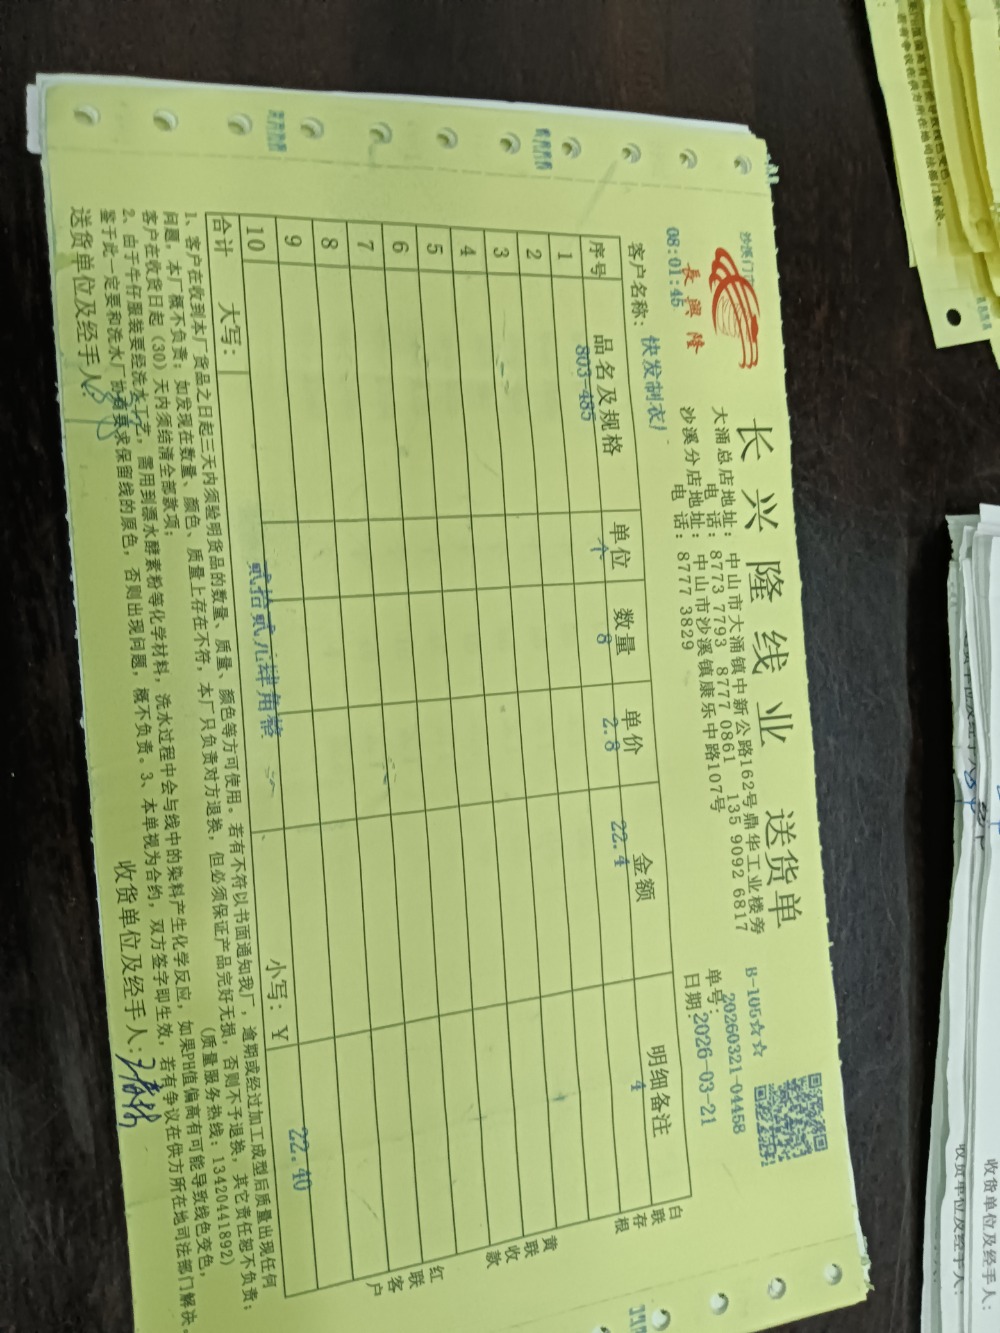 長興隆
08:01:45
长兴隆线业 送货单
大涌总店地址：中山市大涌镇中新公路162号鼎华工业楼旁
电话：8773 7793 8777 0861 135 9092 6817
沙溪分店地址：中山市沙溪镇康乐中路107号
电话：8777 3829
B-105☆☆
单号：20260321-04458
日期：2026-03-21
客户名称：快发制衣厂
序号 品名及规格 单位 数量 单价 金额 明细备注
1 803-485 个 8 2.8 22.4 4
2
3
4
5
6
7
8
9
10
合计 大写：贰拾贰元肆角整 小写：¥ 22.40
白联存根
黄联收款
红联客户
1、客户在收到本厂货品之日起三天内须验明货品的数量、质量、颜色等方可使用。若有不符以书面通知我厂，逾期或经过加工成型后质量出现任何
问题，本厂概不负责；如发现在数量、颜色、质量上存在不符，本厂只负责对方退换，但必须保证产品完好无损，否则不予退换，其它责任恕不负责；
客户在收货日起（30）天内须给清全部款项； （质量服务热线：13420441892）
2、由于牛仔服装要经洗水工艺，需用到漂水酵素粉等化学材料，洗水过程中会与线中的染料产生化学反应，如果PH值偏高有可能导致线色变色，
鉴于此一定要和洗水厂协商要求保留线的原色，否则出现问题，概不负责。3、本单视为合约，双方签字即生效，若有争议在供方所在地司法部门解决。
送货单位及经手人：
收货单位及经手人：
收货单位及经手人：
收货单位及经手人：